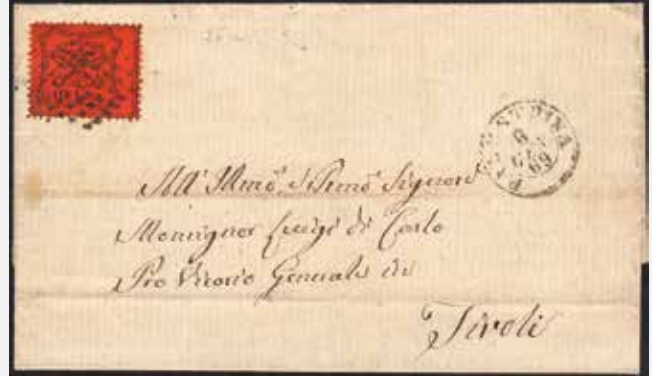 PALESTRINA
6
GEN
69
All' Illmo, e Rmo Signore
Monsignor Luigi di Carlo
Pro Vicario Generale in
Tivoli